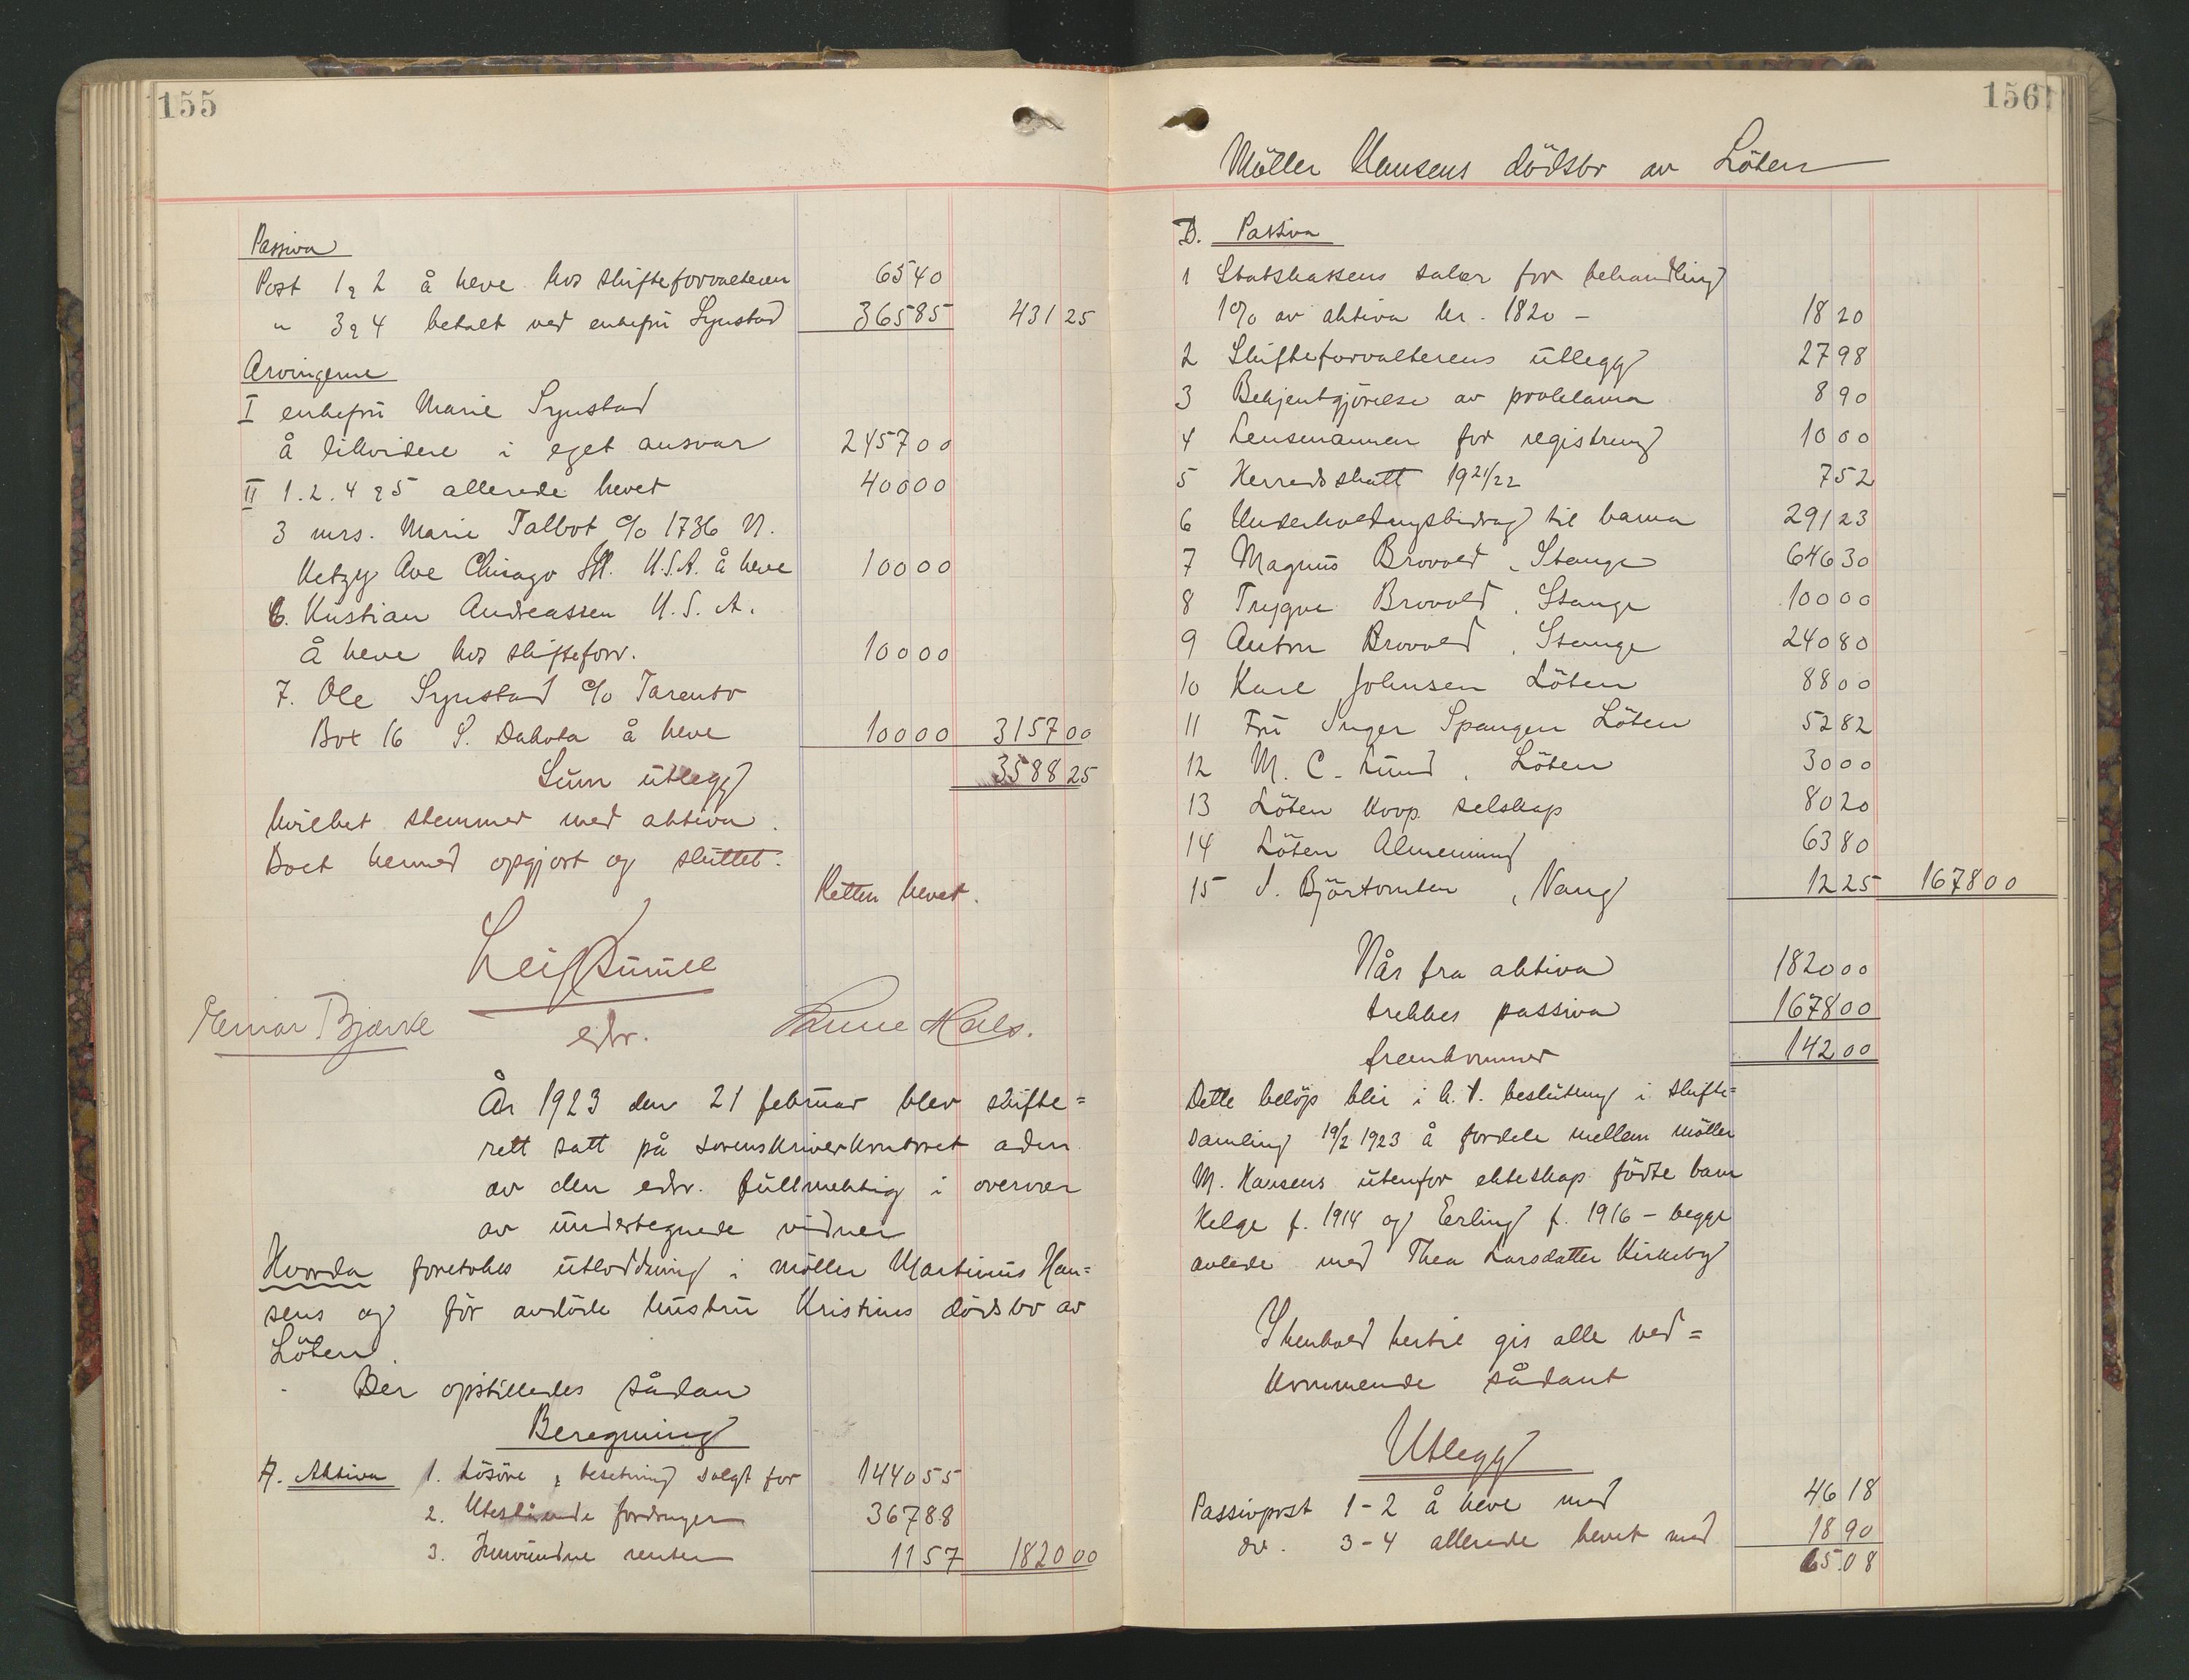 155
Passiva
Post 1 & 2 å heve hos skifteforvalteren 65 40
" 3 & 4 betalt ved enkefru Synstad 365 85 431 25
Arvingerne
I enkefru Marie Synstad
å likvidere i eget ansvar 2457 00
II 1. 2. 4 & 5 allerede hevet 400 00
3 mrs. Marie Talbot c/o 1736 N.
Kedzy Ave Chicago Ill. U.S.A. å heve 100 00
6. Kristian Andreassen U.S.A.
å heve hos skifteforv. 100 00
7. Ole Synstad c/o Tarento
Box 16 S. Dakota å heve 100 00 3157 00
Sum utlegg 3588 25
hvilket stemmer med aktiva.
Boet hermed opgjort og sluttet.
Retten hevet.
Leif
Einar Bjørke edv. Hals.
År 1923 den 21 februar blev skifte=
rett satt på sorenskriverkontoret adm.
av den edv. fullmektig i overvær
av undertegnede vidner
Hvorda foretokes utloddning i møller Martinius Han=
sens og før avdöde hustru Kristines dödsbo av
Löten.
Der opstilledes sådan
Beregning
A. Aktiva 1. Lösöre & besetning solgt for 1440 55
2. Utestående fordringer 367 88
3. Innvundne renter 11 57 1820 00
156
Möller Hansens dödsbo av Löten
B. Passiva
1 Statskassens salær for behandling
1% av aktiva kr. 1820 - 18 20
2 Skifteforvalterens utlegg 27 98
3 Bekjentgjörelse av proklama 8 90
4 Lensmannen for registrering 10 00
5 Herredsskatt 1921/22 7 52
6 Underholdningsbidrag til barna 291 23
7 Magnus Brovold, Stange 646 30
8 Trygve Brovold, Stange 100 00
9 Anton Brovold, Stange 240 80
10 Karl Johnsen Löten 88 00
11 Fru Inger Spangen Löten 52 82
12 M. C. Lund, Löten 30 00
13 Löten Koop. selskap 80 20
14 Löten Almenning 63 80
15 J. Björtomten, Vang 12 25 1678 00
Når fra aktiva 1820 00
trekkes passiva 1678 00
fremkommer 142 00
Dette belöp blir i h. t. beslutning i skifte=
samling 19/2 1923 å fordele mellem möller
M. Hansens utenfor ekteskap födte barn
Helge f. 1914 og Erling f. 1916 - begge
avlede med Thea Larsdatter Kirkeby
I henhold hertil gis alle ved=
kommende sådant
Utlegg
Passivpost 1-2 å heve med 46 18
do. 3-4 allerede hevet med 18 90
65.08